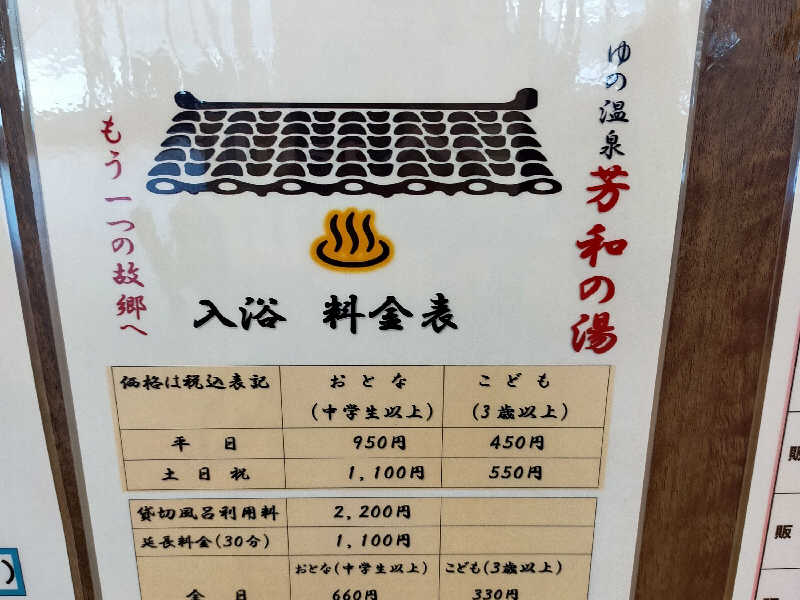 ゆの温泉 芳和の湯
もう一つの故郷へ
入浴 料金表
価格は税込表記 おとな こども
(中学生以上) (3歳以上)
平日 950円 450円
土日祝 1,100円 550円
貸切風呂利用料 2,200円
延長料金(30分) 1,100円
おとな(中学生以上) こども(3歳以上)
全日 660円 330円
)
販
販